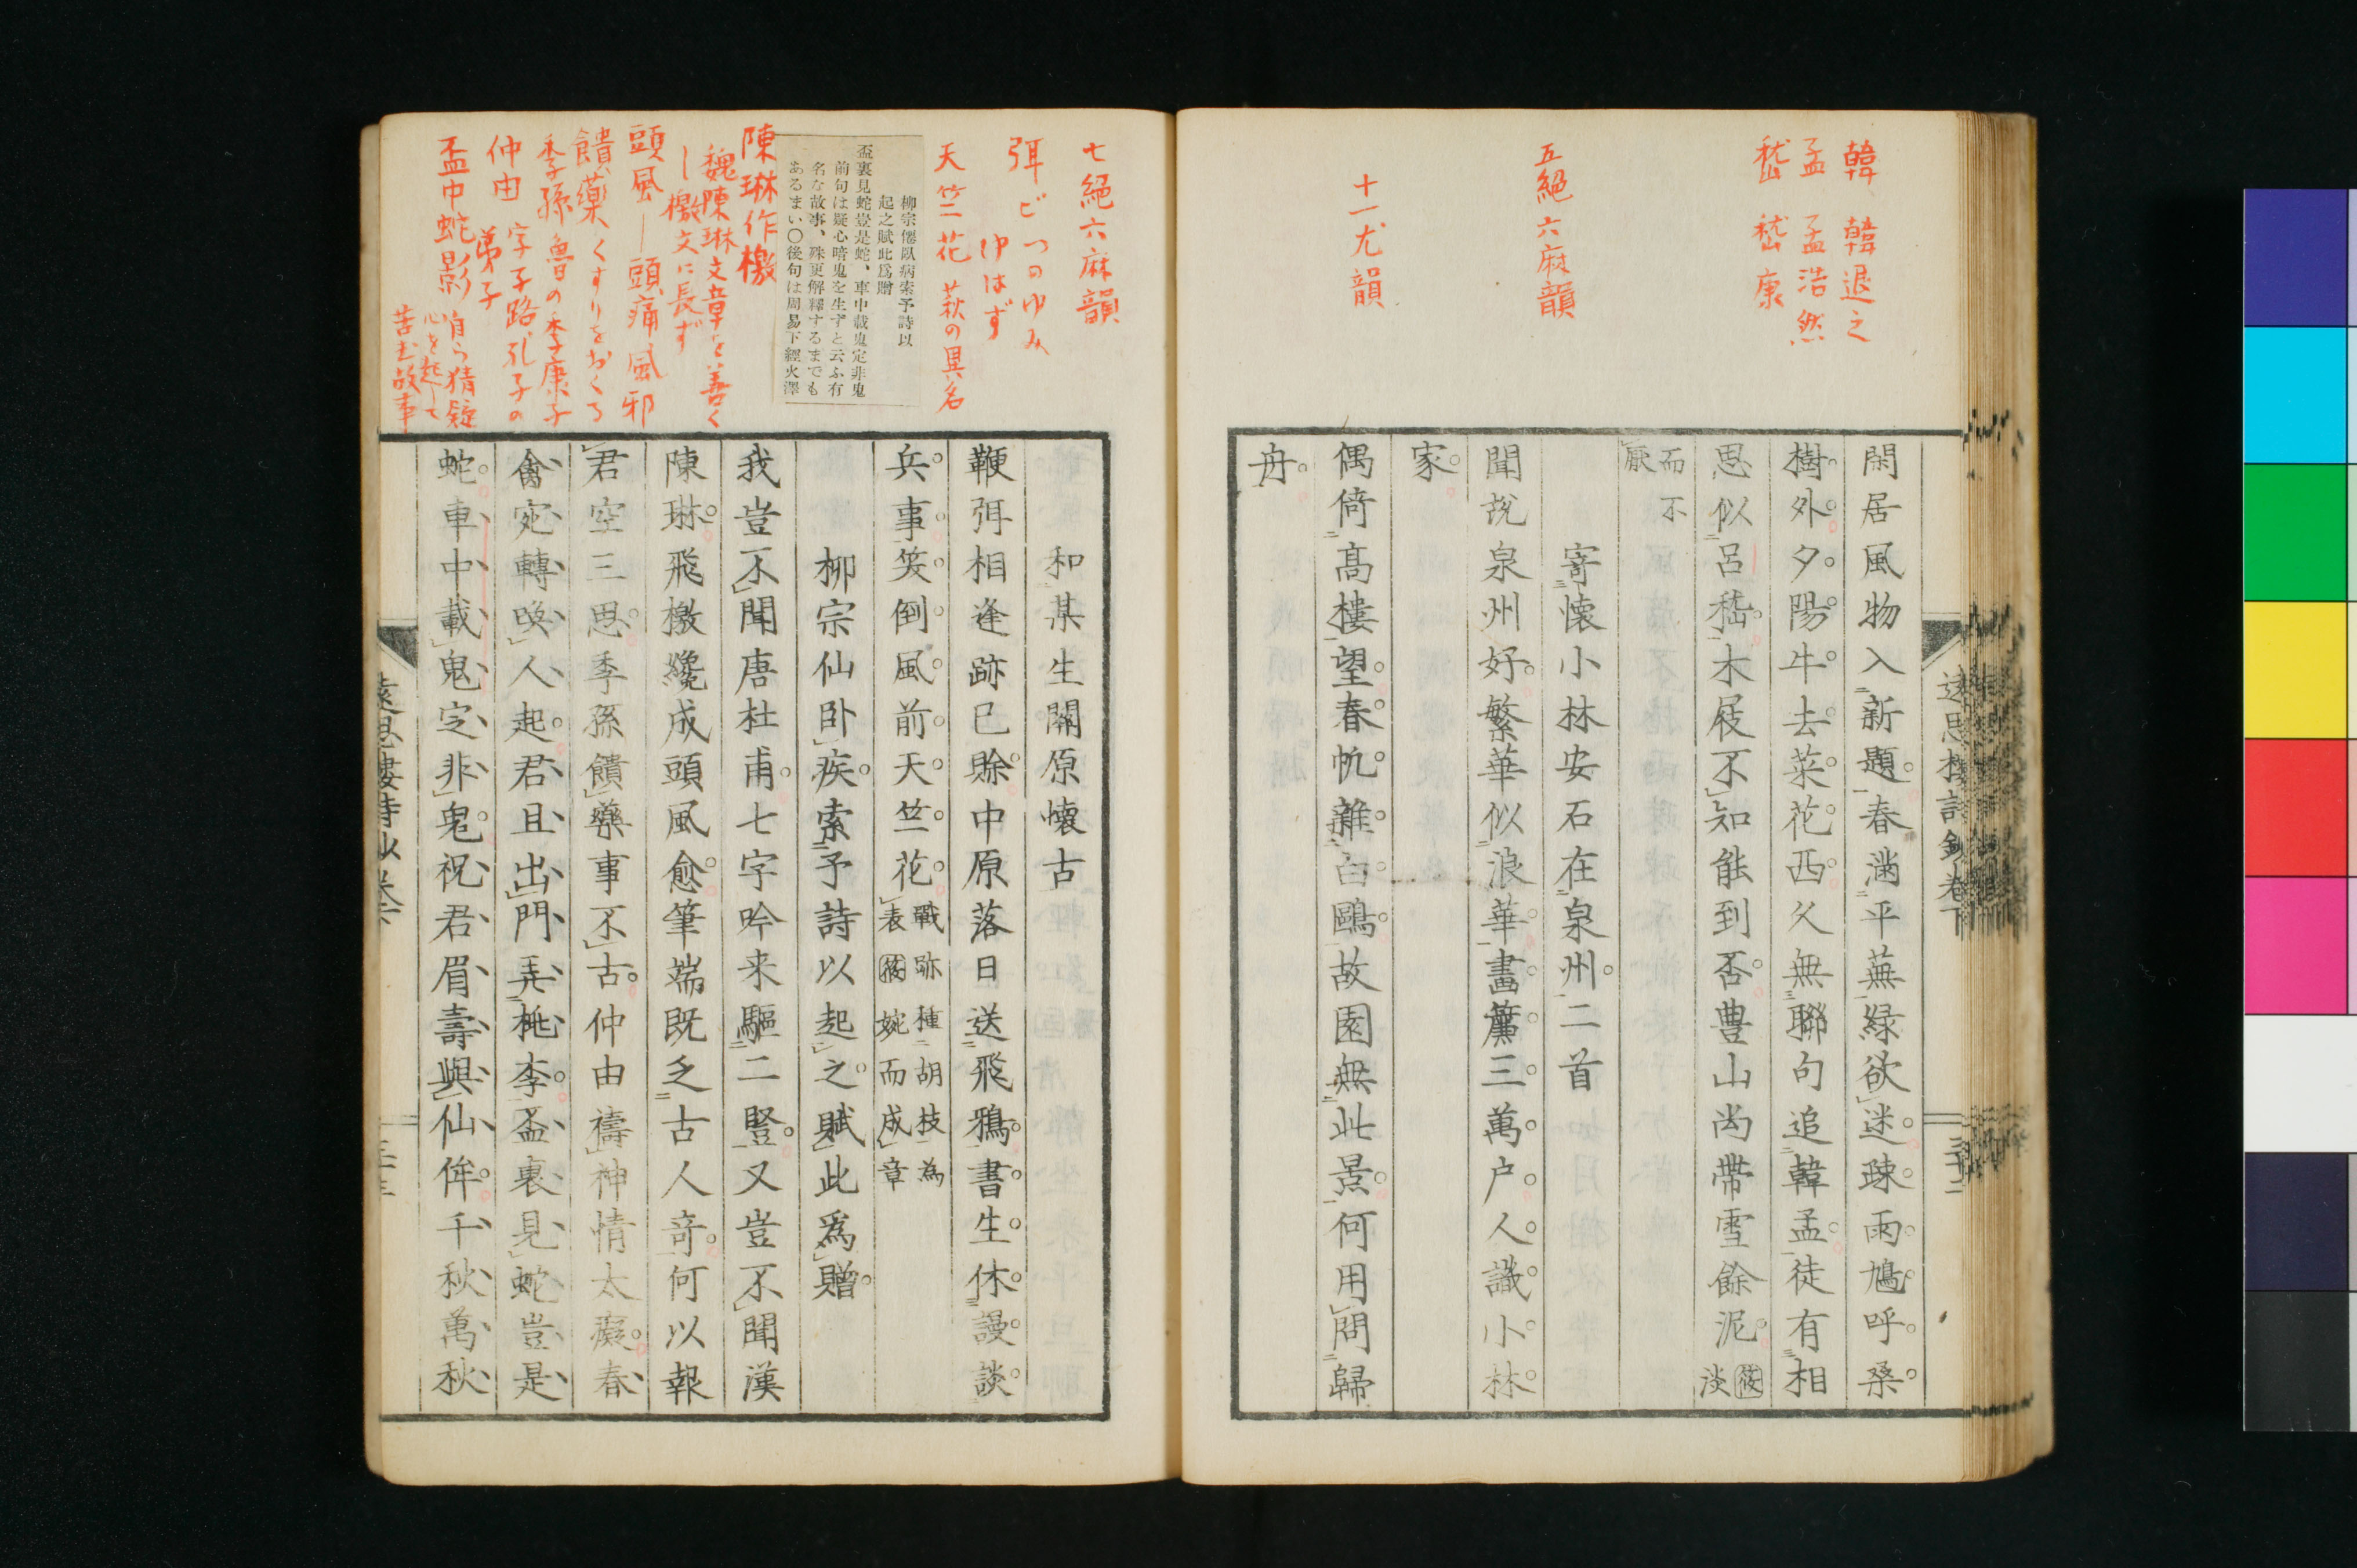 韓、韓退之
孟 孟浩然
嵇 嵇康
五絕 六麻韻
十一尤韻
閑居風物入新題春滿平蕪緑欲迷疎雨鳩呼桑
樹外夕陽牛去菜花西久無聯句追韓孟徒有相
思似呂嵇木屐不知能到否豊山尚帶雪餘泥 筱 淡
而不
厭
寄懷小林安石在泉州二首
聞說泉州好繁華似浪華畵簾三萬户人識小林
家
偶倚髙樓望春帆雜白鷗故園無此景何用問歸
舟
遠思樓詩鈔卷下
三十二
七絕 六麻韻
弭 ビ つのゆみ
ゆはず
天竺花 萩の異名
柳宗僊臥病索予詩以
起之賦此爲贈
盃裏見蛇豈是蛇、車中載鬼定非鬼
前句は疑心暗鬼を生ずと云ふ有
名な故事、殊更解釋するまでも
あるまい〇後句は周易下經火澤
陳琳作檄
魏陳琳文章を善く
し檄文に長ず
頭風—頭痛、風邪
饋藥 くすりをおくる
季孫 魯の季康子
仲由 字子路孔子の
弟子
盃中蛇影 自ら猜疑
心を起して
苦む故事
和某生關原懷古
鞭弭相逢跡已賖中原落日送飛鴉書生休謾談
兵事笑倒風前天竺花 戰跡種胡枝為
表 筱 婉而成章
柳宗仙卧疾索予詩以起之賦此爲贈
我豈不聞唐杜甫七字吟来驅二豎又豈不聞漢
陳琳飛檄纔成頭風愈筆端既乏古人竒何以報
君空三思季孫饋藥事不古仲由禱神情太癡春
禽宛轉喚人起君且出門弄桃李盃裏見蛇豈是
蛇車中載鬼定非鬼祝君眉壽與仙侔千秋萬秋
遠思樓詩鈔卷下
三十三